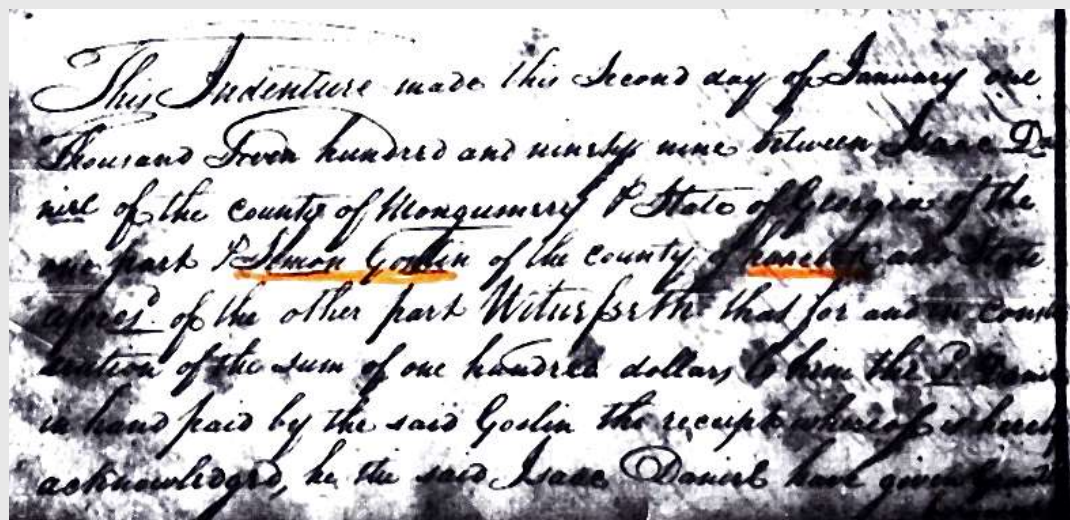 This Indenture made this Second day of January one
Thousand Seven hundred and ninety nine between Isaac Da
niel of the county of Mongumery & State of Georgia of the
one part & Simon Goslin of the county of and State
of the other part Witnesseth that for and in consi
deration of the sum of one hundred dollars to him the sd
in hand paid by the said Goslin the receipt whereof is hereby
acknowledged, he the said Isaac Daniel have given